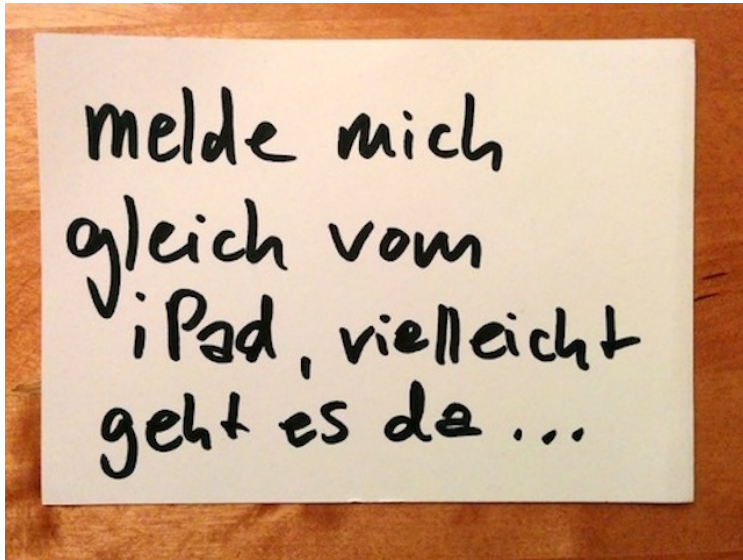 melde mich
gleich vom
iPad, vielleicht
geht es da...